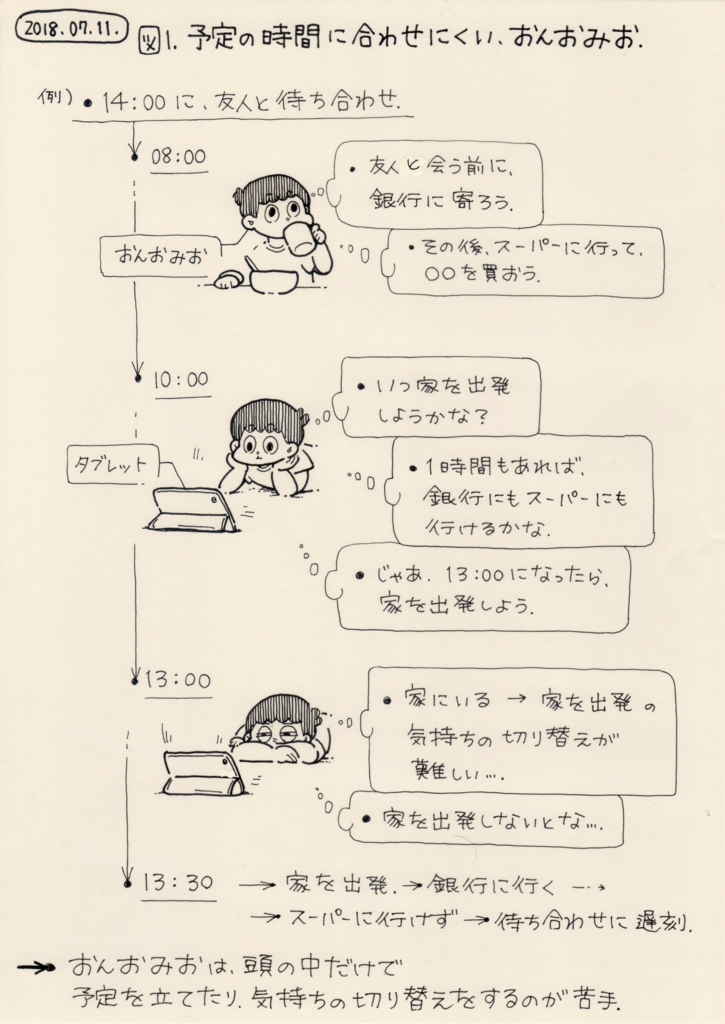 2018.07.11.
図1. 予定の時間に合わせにくい、おんおみお.
例) • 14:00に、友人と待ち合わせ.
• 08:00
• 友人と会う前に、
銀行に寄ろう.
おんおみお
• その後、スーパーに行って、
○○を買おう.
• 10:00
• いつ家を出発
しようかな?
タブレット
• 1時間もあれば、
銀行にもスーパーにも
行けるかな.
• じゃあ、13:00になったら、
家を出発しよう.
• 13:00
• 家にいる → 家を出発の
気持ちの切り替えが
難しい….
• 家を出発しないとな….
• 13:30 → 家を出発. → 銀行に行く ⇢
→ スーパーに行けず → 待ち合わせに遅刻.
→ おんおみおは、頭の中だけで
予定を立てたり、気持ちの切り替えをするのが苦手.